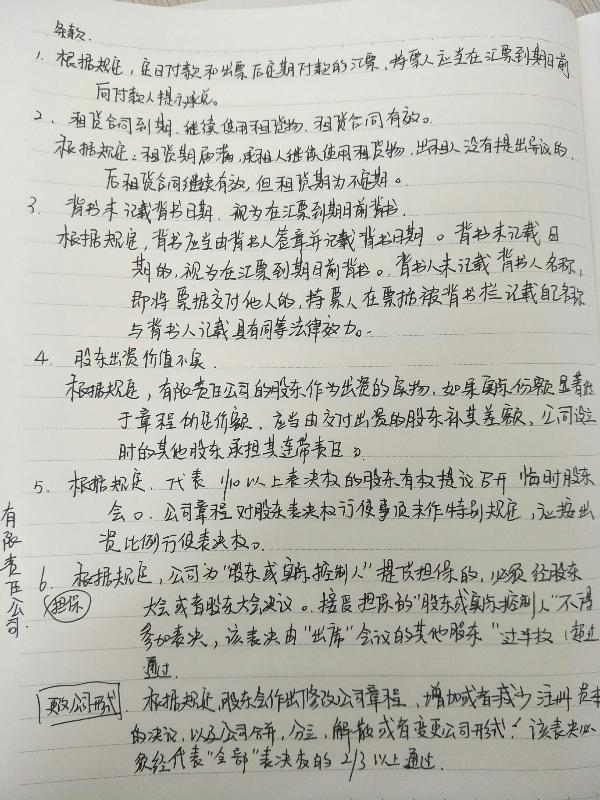 条款.
1. 根据规定,定日付款和出票后定期付款的汇票,持票人应当在汇票到期日前
向付款人提示承兑。
2. 租赁合同到期.继续使用租赁物.租赁合同有效。
根据规定:租赁期届满,承租人继续使用租赁物,出租人没有提出异议的.
后租赁合同继续有效,但租赁期为不定期。
3. 背书未记载背书日期.视为在汇票到期日前背书.
根据规定,背书应当由背书人签章并记载背书日期。背书未记载日
期的,视为在汇票到期日前背书。背书人未记载背书人名称,
即将票据交付他人的,持票人在票据被背书栏记载自己名称
与背书人记载具有同等法律效力。
4. 股东出资价值不实.
根据规定,有限责任公司的股东作为出资的实物,如果实际价额显著低
于章程的定价额,应当由交付出资的股东补其差额,公司设立
时的其他股东承担其连带责任。
5. 根据规定.代表1/10以上表决权的股东有权提议召开临时股东
会。公司章程对股东表决权行使事项未作特别规定,应按出
资比例行使表决权。
有限责任公司.
6. 根据规定,公司为"股东或实际控制人"提供担保的,必须经股东
担保
大会或者股东大会决议。接受担保的"股东或实际控制人"不得
参加表决,该表决由"出席"会议的其他股东"过半数(超过
通过.
更改公司形式
根据规定,股东会作出修改公司章程、增加或者减少注册资本
的决议,以及公司合并,分立,解散或者变更公司形式!该表决必
须经代表"全部"表决权的2/3以上通过.